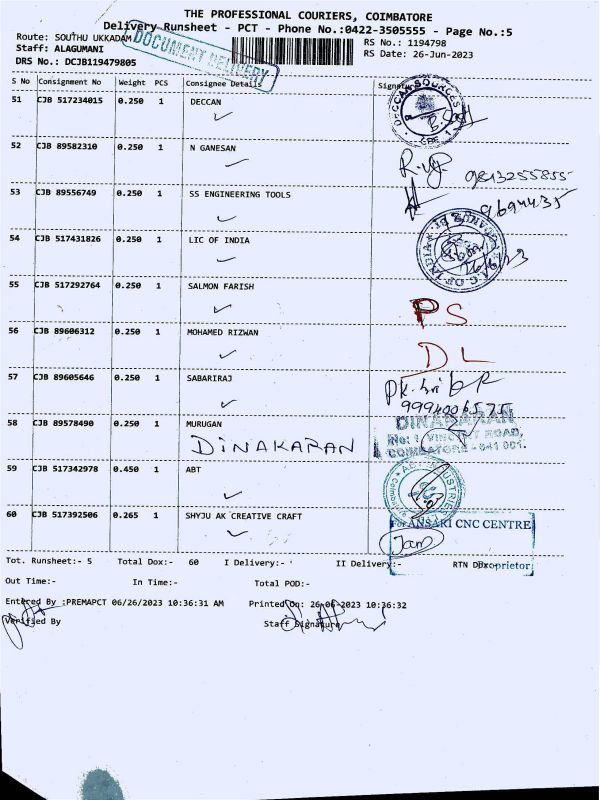 THE PROFESSIONAL COURIERS, COIMBATORE
Delivery Runsheet - PCT - Phone No.:0422-3505555 - Page No.:5
Route: SOUTHU UKKADAM
DOCUMENT DELIVERY
RS No.: 1194798
Staff: ALAGUMANI
RS Date: 26-Jun-2023
DRS No.: DCJB119479805
S No Consignment No Weight PCS Consignee Details Signature
51 CJB 517234015 0.250 1 DECCAN
DECCAN SOURCES CBE
52 CJB 89582310 0.250 1 N GANESAN
9813255855
53 CJB 89556749 0.250 1 SS ENGINEERING TOOLS
54 CJB 517431826 0.250 1 LIC OF INDIA
55 CJB 517292764 0.250 1 SALMON FARISH
PS
56 CJB 89606312 0.250 1 MOHAMED RIZWAN
DL
57 CJB 89605646 0.250 1 SABARIRAJ
58 CJB 89578490 0.250 1 MURUGAN
DINAKARAN
DINAKARAN
COIMBATORE - 641 001.
59 CJB 517342978 0.450 1 ABT
60 CJB 517392506 0.265 1 SHYJU AK CREATIVE CRAFT
For ANSARI CNC CENTRE
Jam
Proprietor
Tot. Runsheet:- 5 Total Dox:- 60 I Delivery:- II Delivery:- RTN
Out Time:- In Time:- Total POD:-
Entered By :PREMAPCT 06/26/2023 10:36:31 AM Printed On: 26-06-2023 10:36:32
Verified By Staff Signature